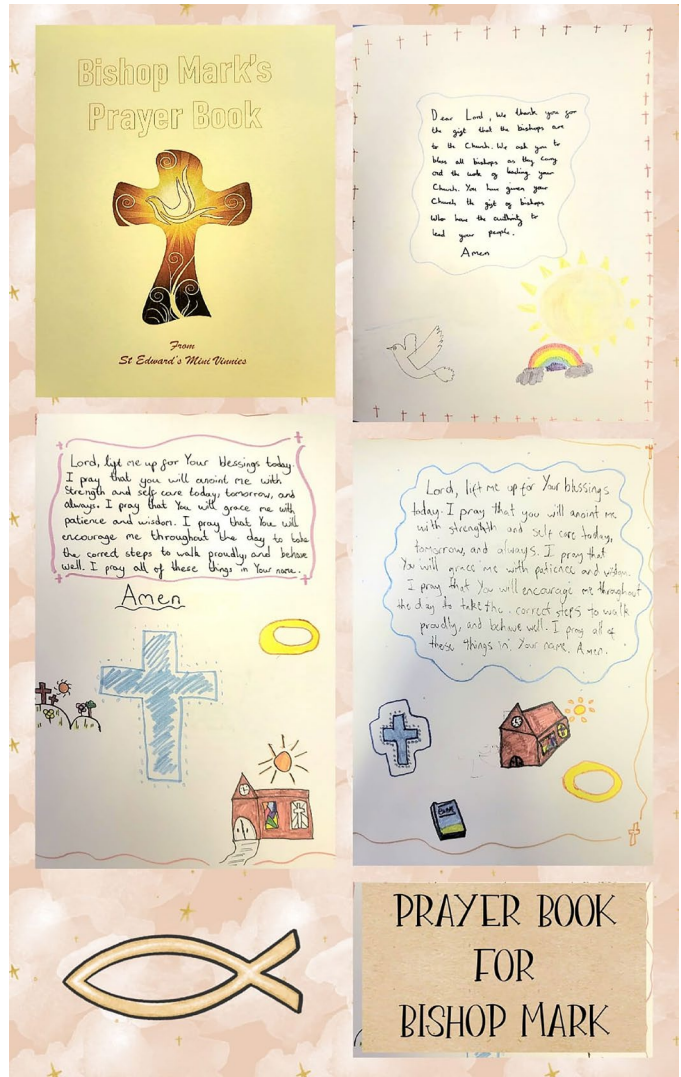 Bishop Mark's
Prayer Book
From
St Edward's Mini Vinnies
Dear Lord, We thank you for
the gift that the bishops are
to the Church. We ask you to
bless all bishops as they carry
out the work of leading your
Church. You have given your
Church the gift of bishops
who have the authority to
lead your people.
Amen
Lord, lift me up for Your blessings today.
I pray that you will anoint me with
Strength and self care today, tomorrow, and
always. I pray that You will grace me with
patience and wisdom. I pray that You will
encourage me throughout the day to take
the correct steps to walk proudly, and behave
well. I pray all of these things in Your name.
Amen
Lord, lift me up for Your blessings
today. I pray that you will anoint me
with strength and self care today,
tomorrow, and always. I pray that
You will grace me with patience and wisdom.
I pray that You will encourage me throughout
the day to take the correct steps to walk
proudly, and behave well. I pray all of
these things in Your name. Amen.
PRAYER BOOK
FOR
BISHOP MARK